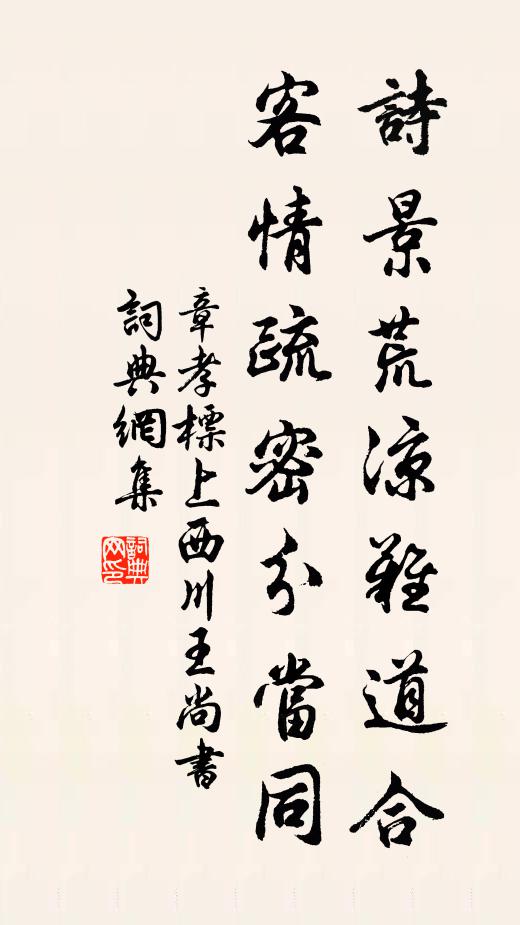 詩景荒涼難道合
客情疏密分當同
章孝標上西川王尚書
詞典網集
詞典網印